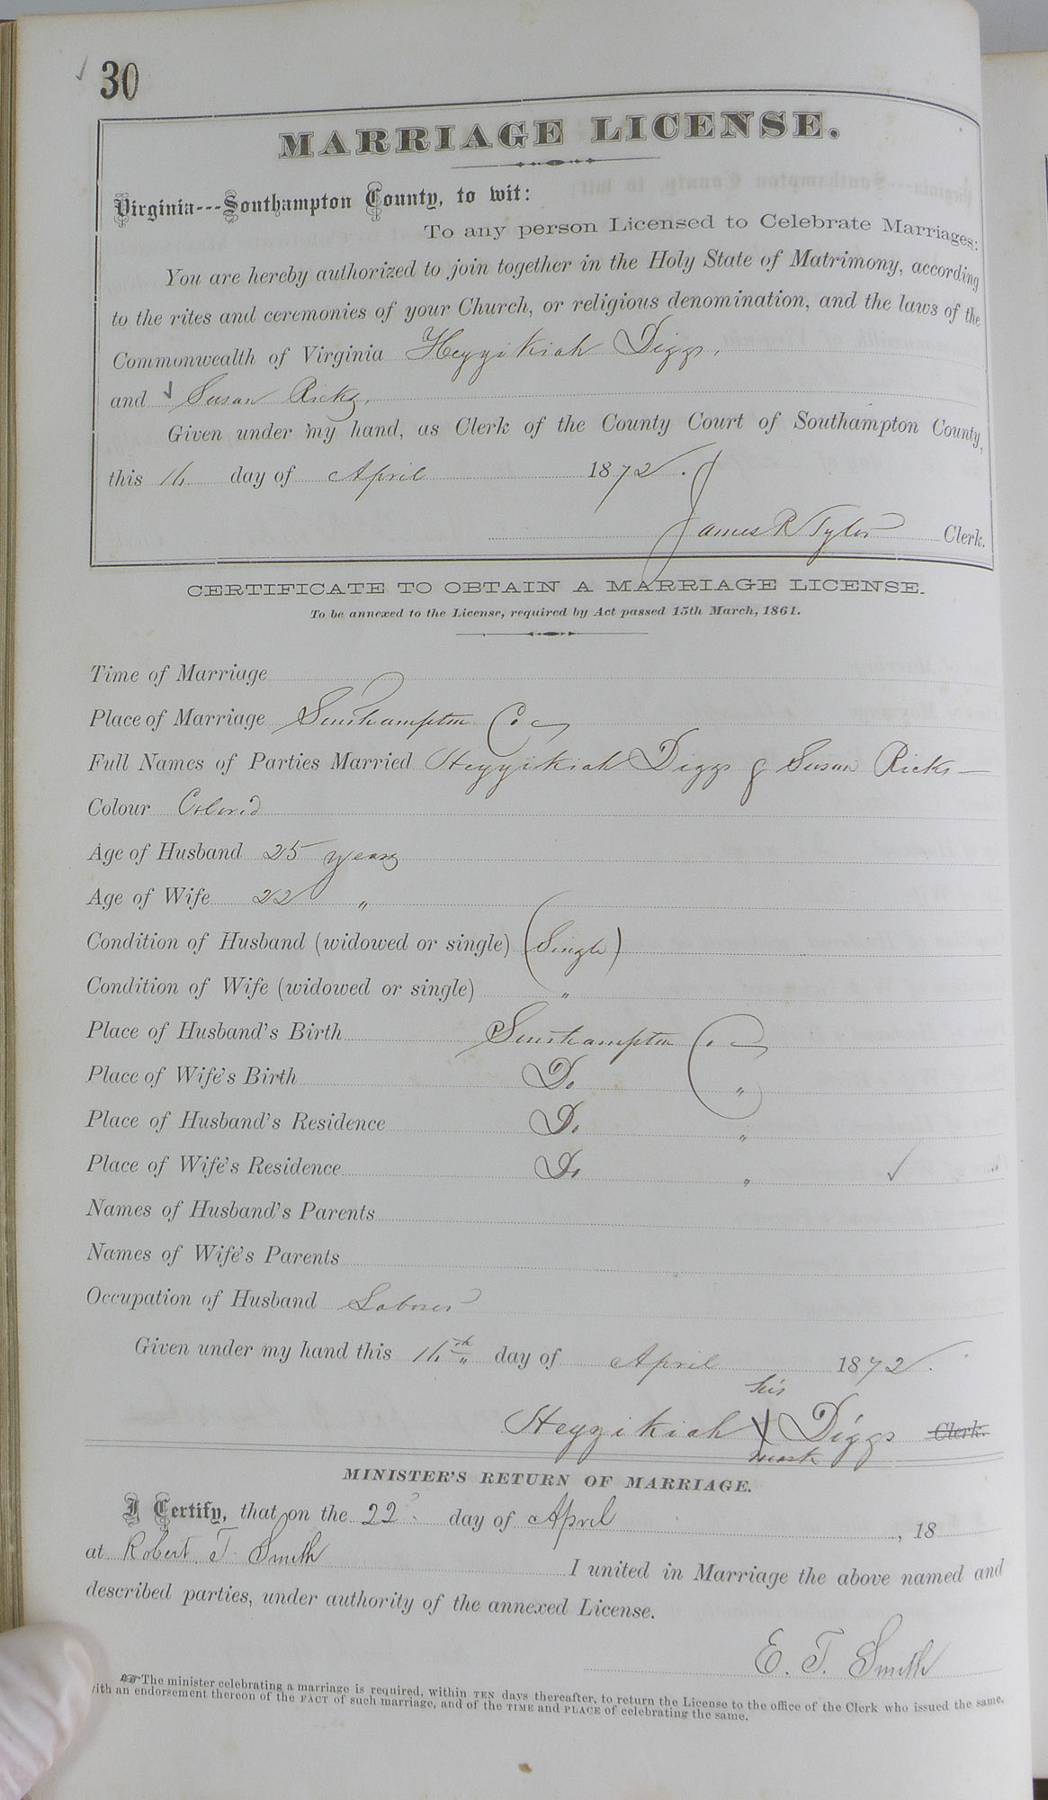 30
MARRIAGE LICENSE.
Virginia---Southampton County, to wit:
To any person Licensed to Celebrate Marriages:
You are hereby authorized to join together in the Holy State of Matrimony, according
to the rites and ceremonies of your Church, or religious denomination, and the laws of the
Commonwealth of Virginia Heyyikiah Diggs,
and ✓ Susan Ricks,
Given under my hand, as Clerk of the County Court of Southampton County,
this 16 day of April 1872.
James R Tyler Clerk.
CERTIFICATE TO OBTAIN A MARRIAGE LICENSE.
To be annexed to the License, required by Act passed 15th March, 1861.
Time of Marriage
Place of Marriage Southampton Co
Full Names of Parties Married Heyyikiah Diggs & Susan Ricks —
Colour Colored
Age of Husband 25 years
Age of Wife 22 "
Condition of Husband (widowed or single) (Single)
Condition of Wife (widowed or single) "
Place of Husband's Birth Southampton Co
Place of Wife's Birth Do "
Place of Husband's Residence Do "
Place of Wife's Residence Do " ✓
Names of Husband's Parents
Names of Wife's Parents
Occupation of Husband Laborer
Given under my hand this 16th day of April 1872.
his
Heyzikiah X Diggs Clerk.
mark
MINISTER'S RETURN OF MARRIAGE.
I Certify, that on the 22 day of April, 18
at Robert T. Smith I united in Marriage the above named and
described parties, under authority of the annexed License.
E. T. Smith
☞ The minister celebrating a marriage is required, within TEN days thereafter, to return the License to the office of the Clerk who issued the same,
with an endorsement thereon of the FACT of such marriage, and of the TIME and PLACE of celebrating the same.